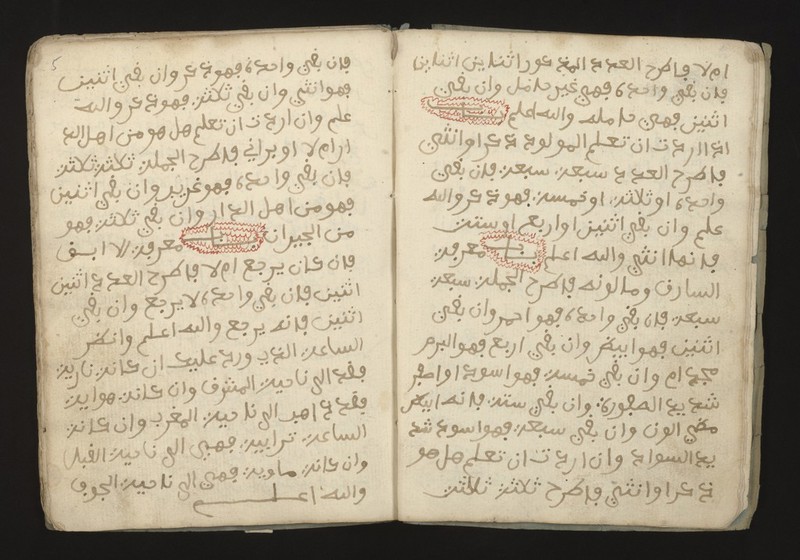 ام لا فاطرح العدد المذكور اثناين اثناين
فان بقي واحدة فهي غير حامل وان بقي
اثنين فهي حامله والله اعلم باب
اذا اردت ان تعلم المولود ذكر او انثى
فاطرح العدد سبعة سبعة فان بقي
واحدة او ثلاثة او خمسة فهو ذكر والله
علم وان بقي اثنين او اربع او ستة
فانها انثى والله اعلم باب معرفة
السارق وما لونه فاطرح الجملة سبعة
سبعة فان بقي واحدة فهو احمر وان بقي
اثنين فهو ابيض وان بقي اربع فهو
وان بقي خمسة فهو اسود او اصفر
شديد الصفورة وان بقي ستة فانه ابيض
مضي الون وان بقي سبعة فهو اسود شد
يد السواد وان اردت ان تعلم هل هو
ذكر او انثى فاطرح ثلاثة ثلاثة
فان بقي واحدة فهو ذكر وان بقي اثنين
فهو انثى وان بقي ثلاثة فهو ذكر والله
علم وان اردت ان تعلم هل هو من اهل الد
ار ام لا او براني فاطرح الجملة ثلاثة ثلاثة
فان بقي واحدة فهو غريب وان بقي اثنين
فهو من اهل الدار وان بقي ثلاثة فهو
من الجيران باب معرفة الابق
فان كان يرجع ام لا فاطرح العدد اثنين
اثنين فان بقي واحدة لا يرجع وان بقي
اثنين فانه يرجع والله اعلم وانظر
الساعة الذي ورد عليك ان كانة نارية
فقد الى ناحية المشرق وان كانة هواية
فقد ذاهب الى ناحية المغرب وان كانة
الساعة ترابية فهي الى ناحية القبلة
وان كانة ماوية فهي الى ناحية الجوف
والله اعلم